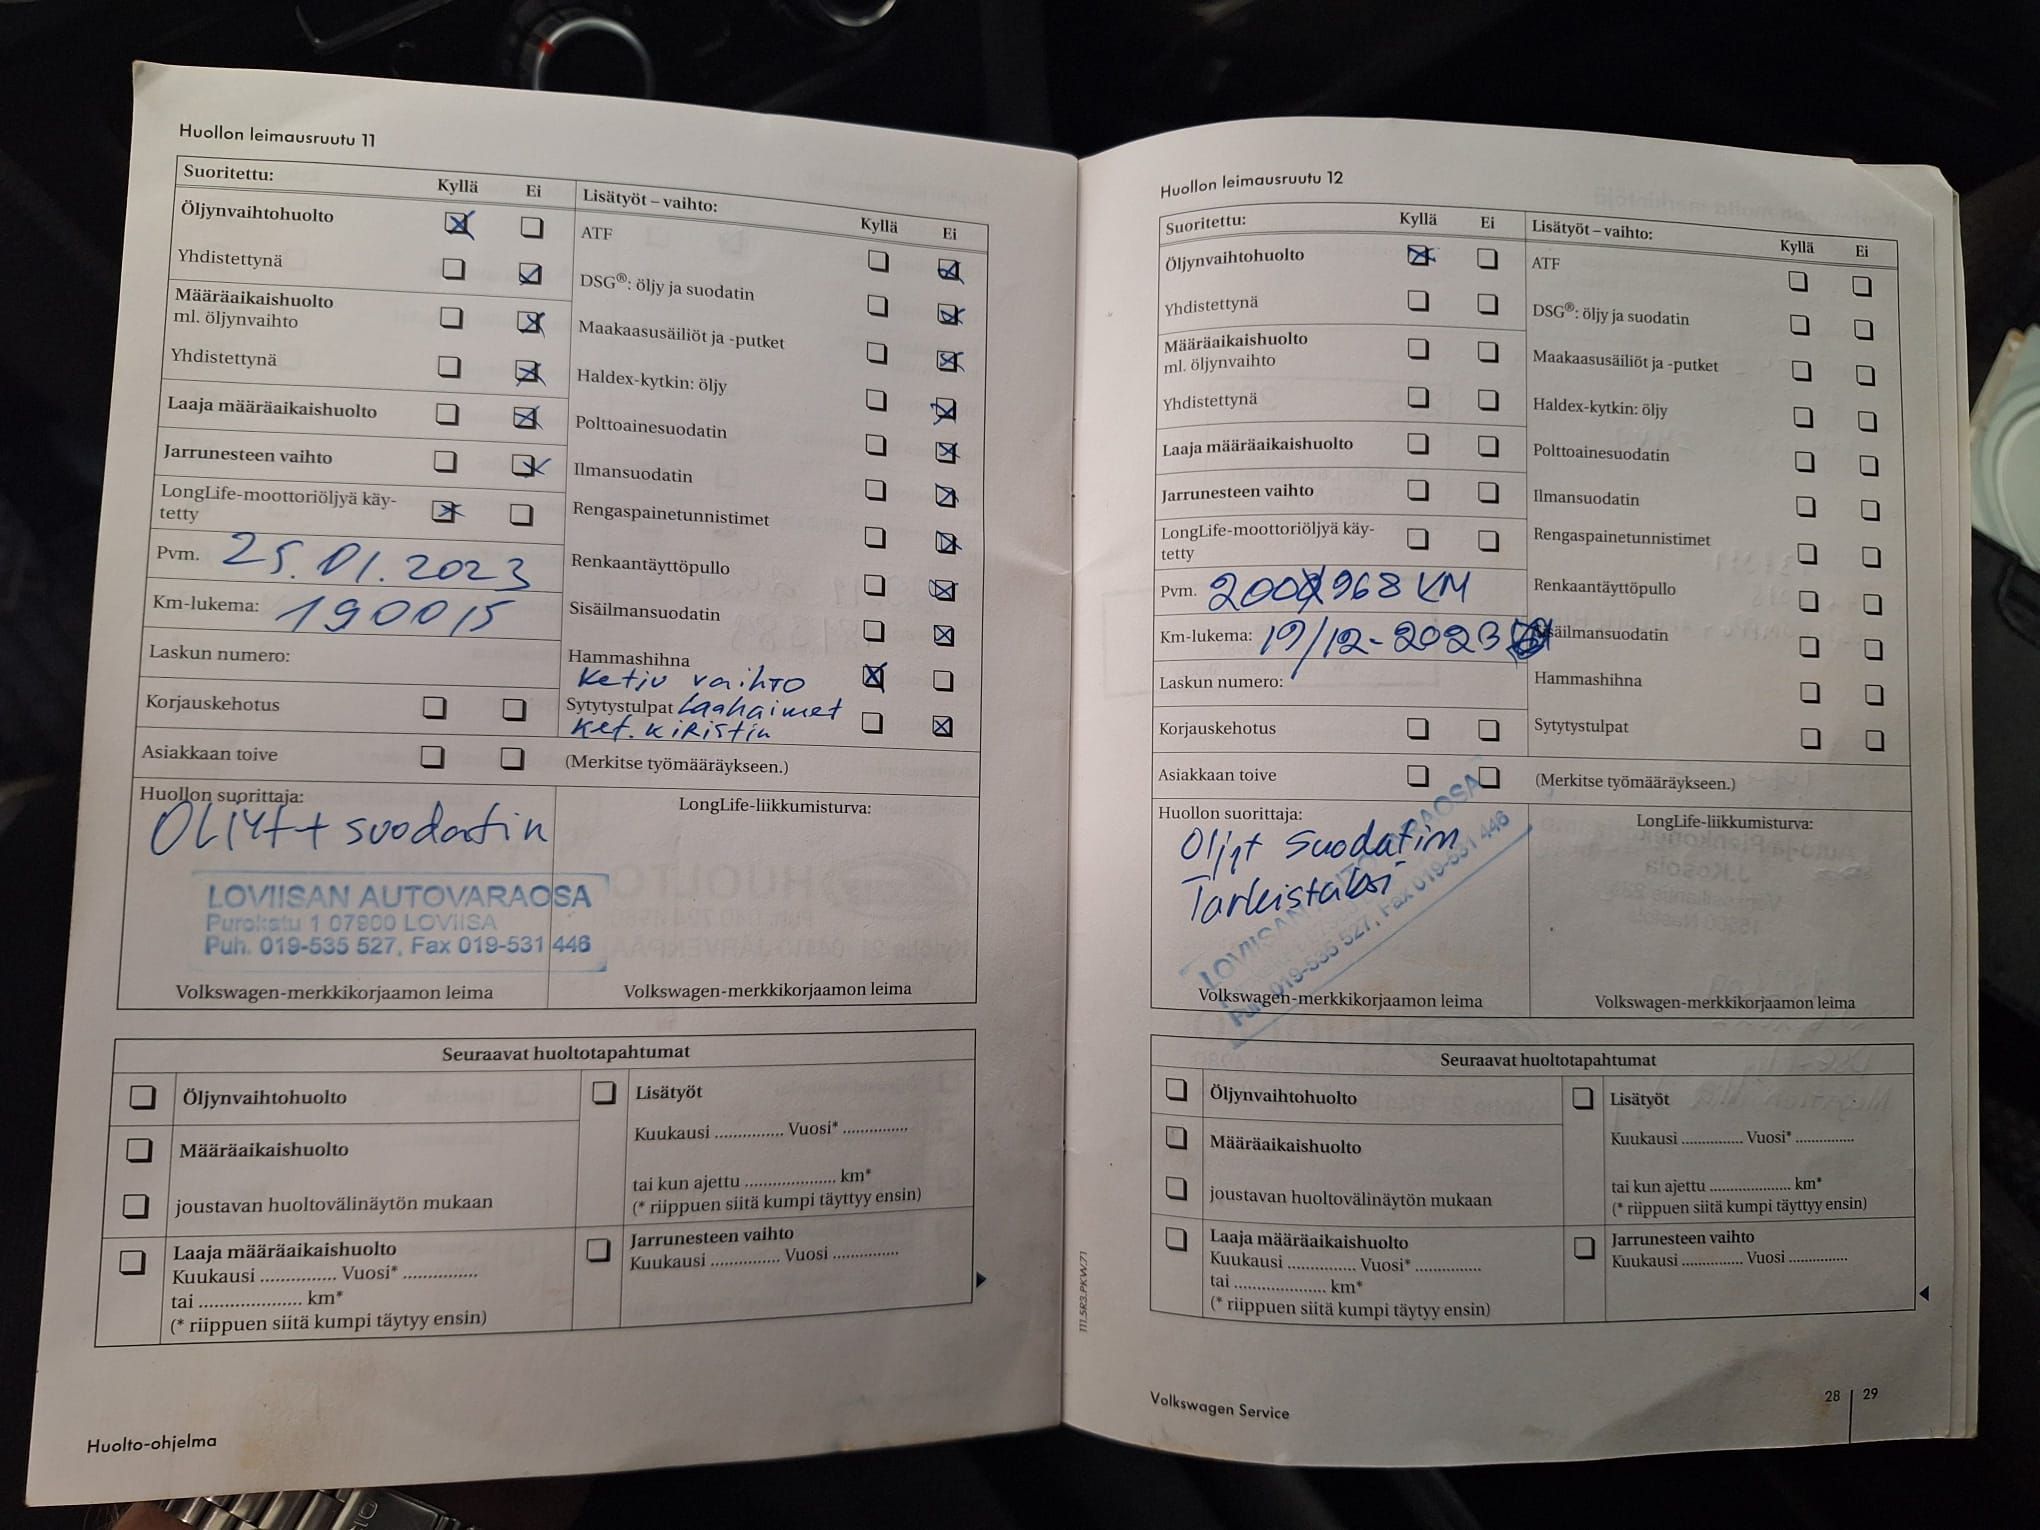 Huollon leimausruutu 11
Suoritettu: Kyllä Ei
Öljynvaihtohuolto
Yhdistettynä
Määräaikaishuolto
ml. öljynvaihto
Yhdistettynä
Laaja määräaikaishuolto
Jarrunesteen vaihto
LongLife-moottoriöljyä käy-
tetty
Pvm. 25.01.2023
Km-lukema: 190015
Laskun numero:
Korjauskehotus
Asiakkaan toive
Lisätyöt – vaihto: Kyllä Ei
ATF
DSG®: öljy ja suodatin
Maakaasusäiliöt ja -putket
Haldex-kytkin: öljy
Polttoainesuodatin
Ilmansuodatin
Rengaspainetunnistimet
Renkaantäyttöpullo
Sisäilmansuodatin
Hammashihna
Ketju vaihto
Sytytystulpat Laahaimet
ket. kiristin
(Merkitse työmääräykseen.)
Huollon suorittaja:
ÖLJYt + suodatin
LOVIISAN AUTOVARAOSA
Purokatu 1 07900 LOVIISA
Puh. 019-535 527, Fax 019-531 446
Volkswagen-merkkikorjaamon leima
LongLife-liikkumisturva:
Volkswagen-merkkikorjaamon leima
Seuraavat huoltotapahtumat
Öljynvaihtohuolto
Määräaikaishuolto
joustavan huoltovälinäytön mukaan
Laaja määräaikaishuolto
Kuukausi ............... Vuosi* ...............
tai ..................... km*
(* riippuen siitä kumpi täytyy ensin)
Lisätyöt
Kuukausi ............... Vuosi* ...............
tai kun ajettu ..................... km*
(* riippuen siitä kumpi täyttyy ensin)
Jarrunesteen vaihto
Kuukausi ............... Vuosi ...............
Huolto-ohjelma
Huollon leimausruutu 12
Suoritettu: Kyllä Ei
Öljynvaihtohuolto
Yhdistettynä
Määräaikaishuolto
ml. öljynvaihto
Yhdistettynä
Laaja määräaikaishuolto
Jarrunesteen vaihto
LongLife-moottoriöljyä käy-
tetty
Pvm. 200968 KM
Km-lukema: 19/12-2023
Laskun numero:
Korjauskehotus
Asiakkaan toive
Lisätyöt – vaihto: Kyllä Ei
ATF
DSG®: öljy ja suodatin
Maakaasusäiliöt ja -putket
Haldex-kytkin: öljy
Polttoainesuodatin
Ilmansuodatin
Rengaspainetunnistimet
Renkaantäyttöpullo
Sisäilmansuodatin
Hammashihna
Sytytystulpat
(Merkitse työmääräykseen.)
Huollon suorittaja:
Öljyt Suodatim
Tarkistaksi
LOVIISAN AUTOVARAOSA
Puh. 019-535 527, Fax 019-531 446
Volkswagen-merkkikorjaamon leima
LongLife-liikkumisturva:
Volkswagen-merkkikorjaamon leima
Seuraavat huoltotapahtumat
Öljynvaihtohuolto
Määräaikaishuolto
joustavan huoltovälinäytön mukaan
Laaja määräaikaishuolto
Kuukausi ............... Vuosi* ...............
tai ..................... km*
(* riippuen siitä kumpi täytyy ensin)
Lisätyöt
Kuukausi ............... Vuosi* ...............
tai kun ajettu ..................... km*
(* riippuen siitä kumpi täyttyy ensin)
Jarrunesteen vaihto
Kuukausi ............... Vuosi ...............
111.5R3.PKW.71
Volkswagen Service
28 | 29